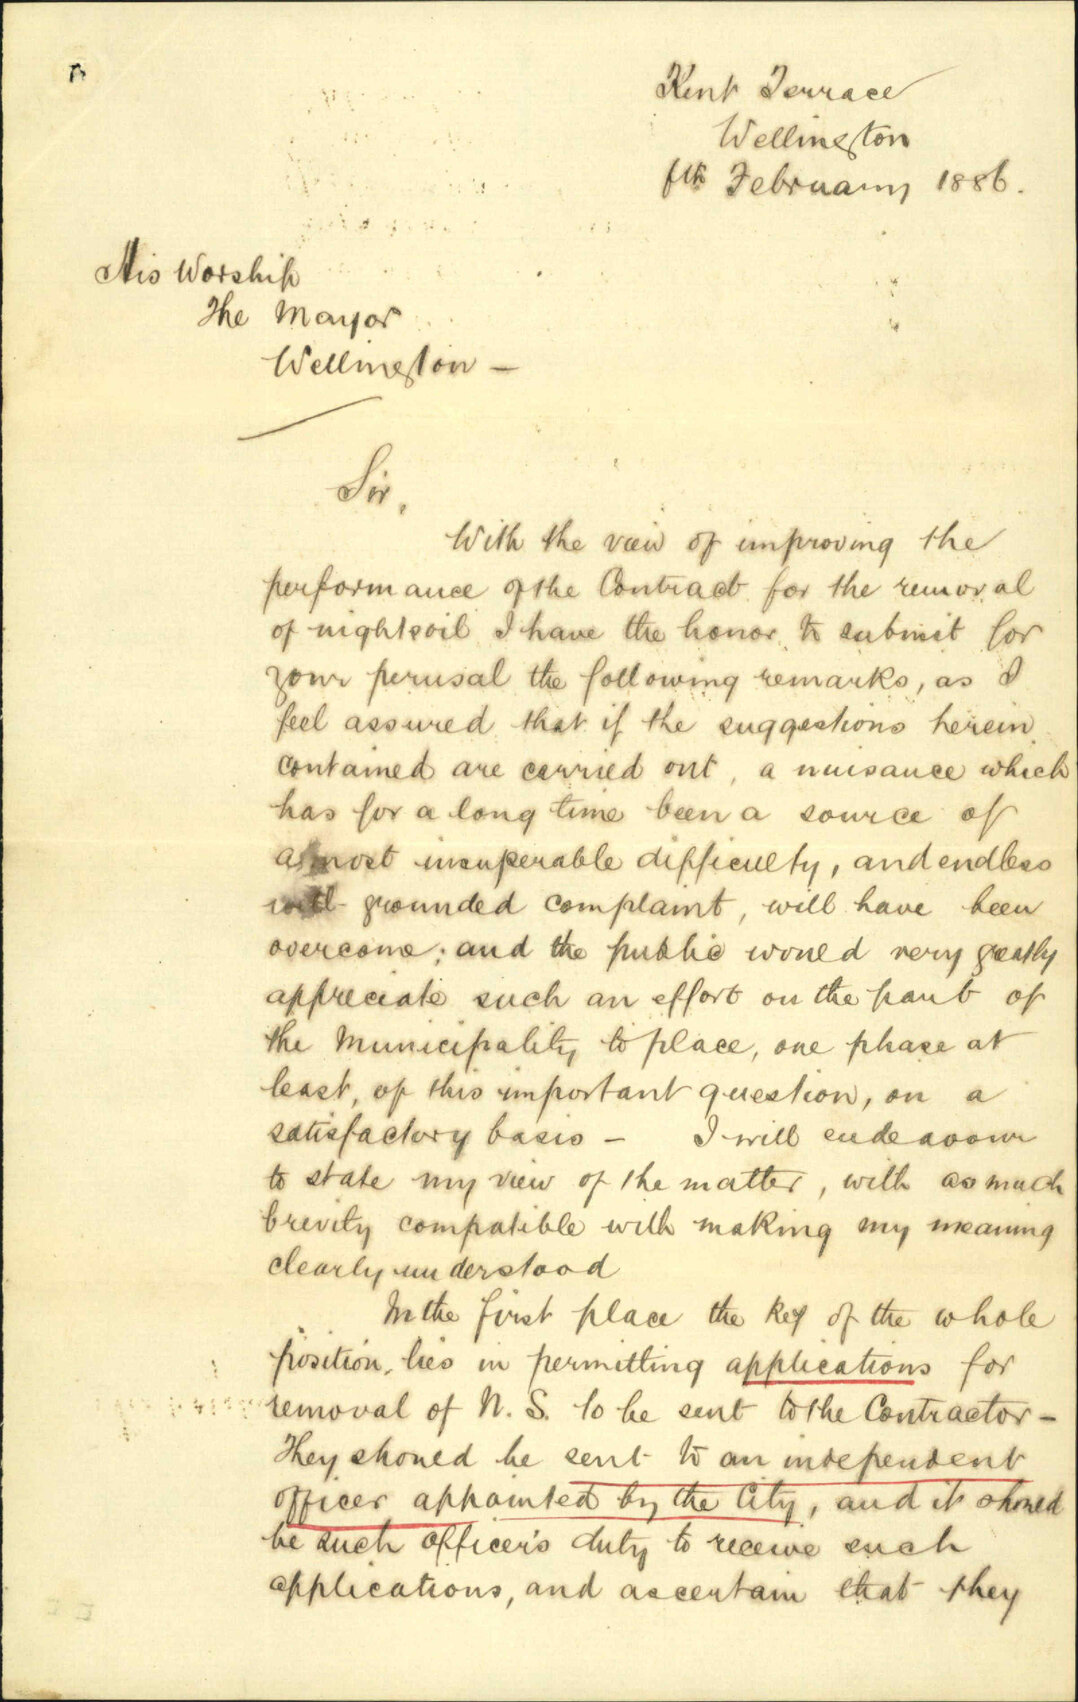 Kent Terrace
Wellington
February 1886.
His Worship
The Mayor
Wellington —
Sir,
With the view of improving the
performance of the Contract for the removal
of nightsoil I have the honor to submit for
your perusal the following remarks, as I
feel assured that if the suggestions herein
contained are carried out, a nuisance which
has for a long time been a source of
almost insuperable difficulty, and endless
well-grounded complaint, will have been
overcome; and the public would very greatly
appreciate such an effort on the part of
the Municipality to place, one phase at
least, of this important question, on a
satisfactory basis — I will endeavour
to state my view of the matter, with as much
brevity compatible with making my meaning
clearly understood
In the first place the key of the whole
position, lies in permitting applications for
removal of N. S. to be sent to the Contractor —
They should be sent to an independent
officer appointed by the City, and it should
be such officer's duty to receive such
applications, and ascertain that they